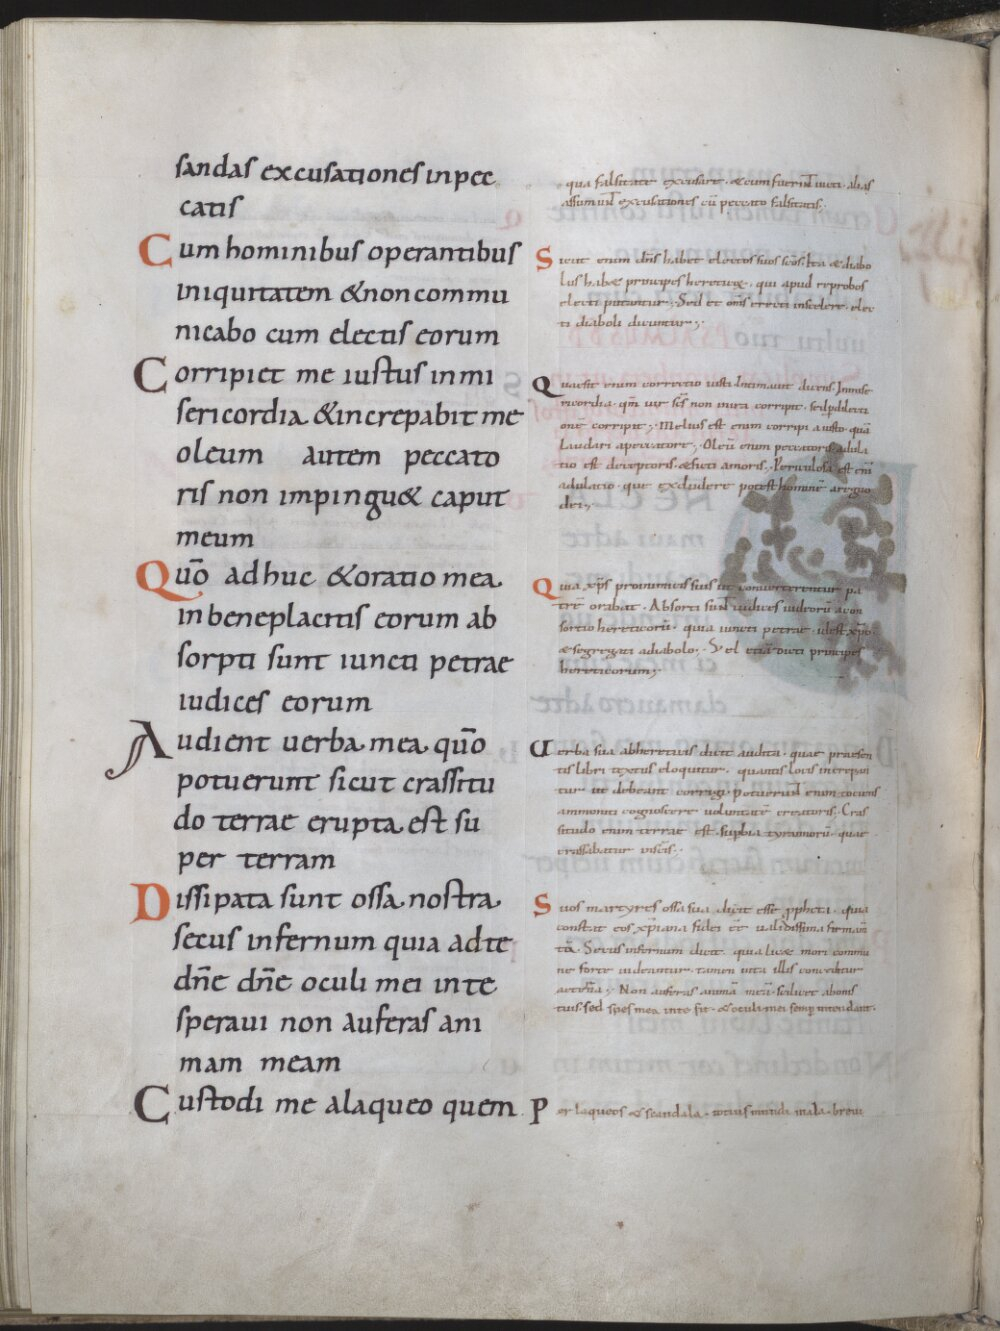 sandas excusationes in pec
catis
Cum hominibus operantibus
iniquitatem & non commu
nicabo cum electis eorum
Corripiet me iustus in mi
sericordia & increpabit me
oleum autem peccato
ris non impingu& caput
meum
Quō adhuc & oratio mea
in beneplacitis eorum ab
sorpti sunt iuncti petrae
iudices eorum
Audient uerba mea quō
potuerunt sicut crassitu
do terrae erupta est su
per terram
Dissipata sunt ossa nostra
secus infernum quia ad te
dñe dñe oculi mei in te
speraui non auferas ani
mam meam
Custodi me a laqueo quem
qua falsitate excusare · & cum fuerint uicti · alias
assumunt excusationes cū peccato falsitatis ·
Sicut enim dñs habet electos suos scōs ita & diabo
lus hab& principes heretice · qui apud reprobos
electi putantur · Sed et om̄s erecti in scelere · elec
ti diaboli dicuntur ;
Quae sit enim correctio iusti Intimauit dicens · In mise
ricordia · qm̄ uir sc̄s non in ira corripit · sed p dilecti
one corripit ; Melius est enim corripi a iusto · quā
laudari a peccatore ; Oleū enim peccatoris adula
tio est deceptoris · & ficti amoris · Periculosa est enī
adulatio · que excludere potest hominē a regno
dei ;
Quia xp̄s pro inimicis suis ut conuerterentur pa
trē orabat · Absorti sunt iudices iudeorū a con
sortio hereticorū · quia iuncti petrae · id est xp̄o ·
& segregati a diabolo ; Vel etiā dicti principes
hereticorum ;
Uerba sua ab hereticis dicit audita · quae praesen
tis libri textus eloquitur · quantis locis increpan
tur ut debeant corrigi · Potuerunt enim tociens
ammoniti cognoscere uoluntatē creatoris · Cras
situdo enim terrae est · supbia tyrannorū · quae
crassibatur uiciis ·
Suos martyres ossa sua dicit esse ppheta · quia
constat eos xp̄iana fidei ēē ualidissima firmam
tā · Secus infernum dicit · quia lic& mori commu
ne sorte uideantur · tamen uita illis conceditur
aeterna ; Non auferas animā meā · scilicet a bonis
tuis · sed spes mea in te sit · & oculi mei semp intendant ·
Per laqueos & scandala · totius mundi mala · breui